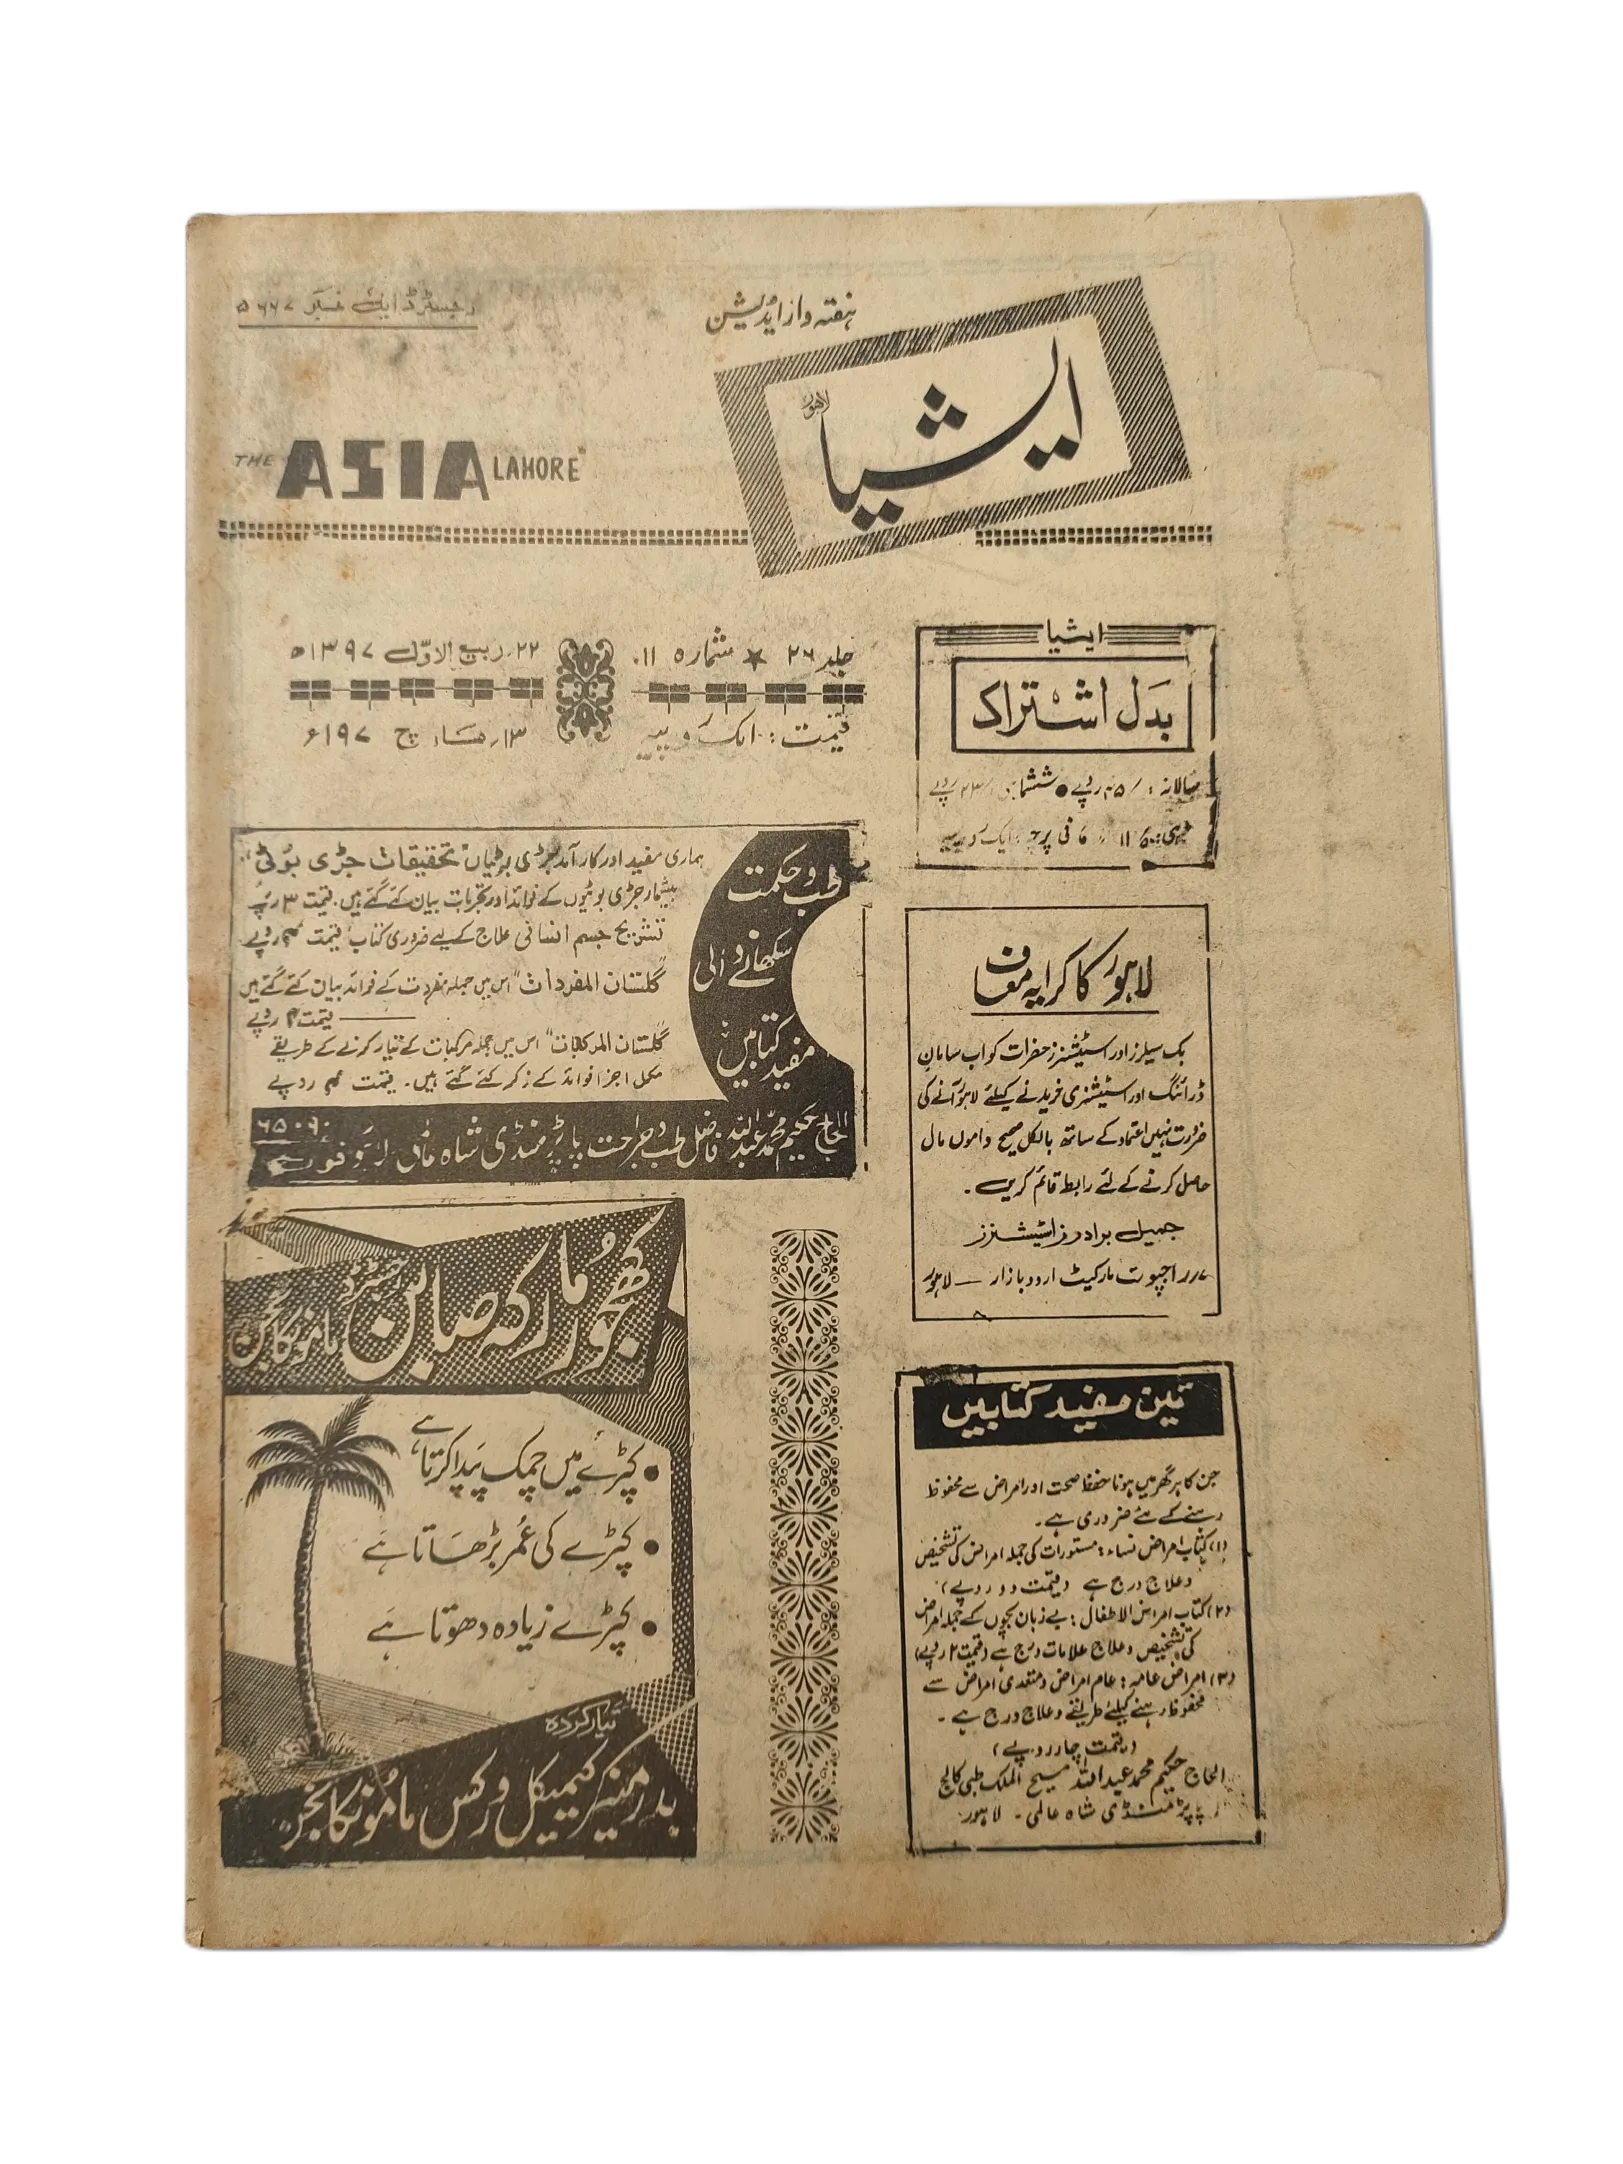 رجسٹرڈ ایل نمبر ۵۶۶۷
ہفتہ وار ایڈیشن
ایشیا
لاہور
THE ASIA LAHORE
جلد ۲۶ ★ شمارہ ۱۱
۲۲؍ ربیع الاوّل ۱۳۹۷ھ
قیمت: ایک روپیہ
۱۳؍ مارچ ۱۹۷۷ء
ایشیا
بَدَل اشتراک
سالانہ: ۴۵/ روپے ● ششماہی: ۲۳/ روپے
فی پرچہ: ایک روپیہ
طب و حکمت
سکھانے والی
مفید کتابیں
ہماری مفید اور کارآمد جڑی بوٹیاں "تحقیقات جڑی بوٹی"
بیشمار جڑی بوٹیوں کے فوائد اور تجربات بیان کئے گئے ہیں. قیمت ۳ روپے
تشریح جسم انسانی علاج کے لیے ضروری کتاب قیمت روپے
"گلستان المفردات" اس میں جملہ مفردات کے فوائد بیان کئے گئے ہیں
قیمت ۴ روپے
"گلستان المرکبات" اس میں جملہ مرکبات کے تیار کرنے کے طریقے
مکمل اجزا فوائد کے ذکر کئے گئے ہیں۔ قیمت روپے
الحاج حکیم محمد عبداللہ فاضل طب و جراحت پاپڑ منڈی شاہ عالمی لاہور فون ۶۵۰۶۰
لاہور کا کرایہ معاف
بک سیلرز اور اسٹیشنرز حضرات کو اب سامانِ
ڈرائنگ اور اسٹیشنری خریدنے کیلئے لاہور آنے کی
ضرورت نہیں اعتماد کے ساتھ بالکل صحیح داموں مال
حاصل کرنے کے لئے رابطہ قائم کریں۔
جمیل برادرز اسٹیشنرز
۷؍ راجپوت مارکیٹ اردو بازار — لاہور
کھجور مارکہ صابن رجسٹرڈ
مامونکانجن
● کپڑے میں چمک پیدا کرتا ہے
● کپڑے کی عُمر بڑھاتا ہے
● کپڑے زیادہ دھوتا ہے
تیار کردہ
بدر منیر کیمیکل ورکس مامونکانجن
تین مفید کتابیں
جن کا ہر گھر میں ہونا حفظ صحت اور امراض سے محفوظ
رہنے کے لئے ضروری ہے۔
(۱) کتاب امراض نساء: مستورات کی جملہ امراض کی تشخیص
و علاج درج ہے (قیمت دو روپے)
(۲) کتاب امراض الاطفال: بے زبان بچوں کے جملہ امراض
کی تشخیص و علاج علامات درج ہے (قیمت ۲ روپے)
(۳) امراض عامہ: عام امراض و متعدی امراض سے
محفوظ رہنے کیلئے طریقے و علاج درج ہے۔
(قیمت چار روپے)
الحاج حکیم محمد عبداللہ مسیح الملک طبی کالج
پاپڑ منڈی شاہ عالمی۔ لاہور